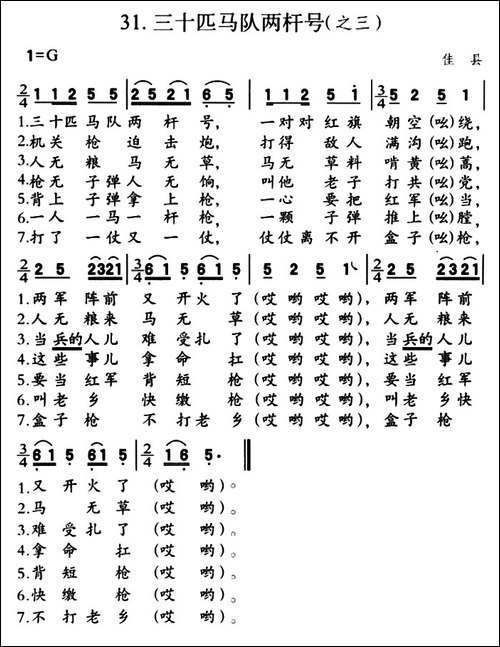 31. 三十匹马队两杆号(之三)
1=G 佳 县
2/4 1 1 2 5 5 | 2 5 2 1 6 5 | 1 1 2 5 i | 3/4 5 2 5 1 |
1.三十匹 马 队 两 杆 号, 一 对 对 红 旗 朝 空 (吆) 绕,
2.机 关 枪 迫 击 炮, 打 得 敌 人 满 沟 (吆) 跑,
3.人 无 粮 马 无 草, 马 无 草 料 啃 黄 (吆) 蒿,
4.枪 无 子 弹 人 无 饷, 叫 他 老 子 打 共 (吆) 党,
5.背 上 子 弹 拿 上 枪, 一 心 要 把 红 军 (吆) 当,
6.一 人 一 马 一 杆 枪, 一 颗 子 弹 推 上 (吆) 膛,
7.打 了 一 仗 又 一 仗, 仗 仗 离 不 开 盒 子 (吆) 枪,
2/4 2 5 2321 | 3/4 6 1 5 6 1 5 | 5 2 5 1 | 2/4 2 5 2321 |
1.两 军 阵 前 又 开 火 了 (哎 哟 哎 哟), 两 军 阵 前
2.人 无 粮 来 马 无 草 (哎 哟 哎 哟), 人 无 粮 来
3.当 兵的 人 儿 难 受 扎 了 (哎 哟 哎 哟), 当 兵的 人 儿
4.这 些 事 儿 拿 命 扛 (哎 哟 哎 哟), 这 些 事 儿
5.要 当 红 军 背 短 枪 (哎 哟 哎 哟), 要 当 红 军
6.叫 老 乡 快 缴 枪 (哎 哟 哎 哟), 叫 老 乡 快
7.盒 子 枪 不 打 老 乡 (哎 哟 哎 哟), 盒 子 枪
3/4 6 1 5 6 1 5 | 2/4 1 6 5 · ‖
1.又 开 火 了 (哎 哟)。
2.马 无 草 (哎 哟)。
3.难 受 扎 了 (哎 哟)。
4.拿 命 扛 (哎 哟)。
5.背 短 枪 (哎 哟)。
6.快 缴 枪 (哎 哟)。
7.不 打 老 乡 (哎 哟)。